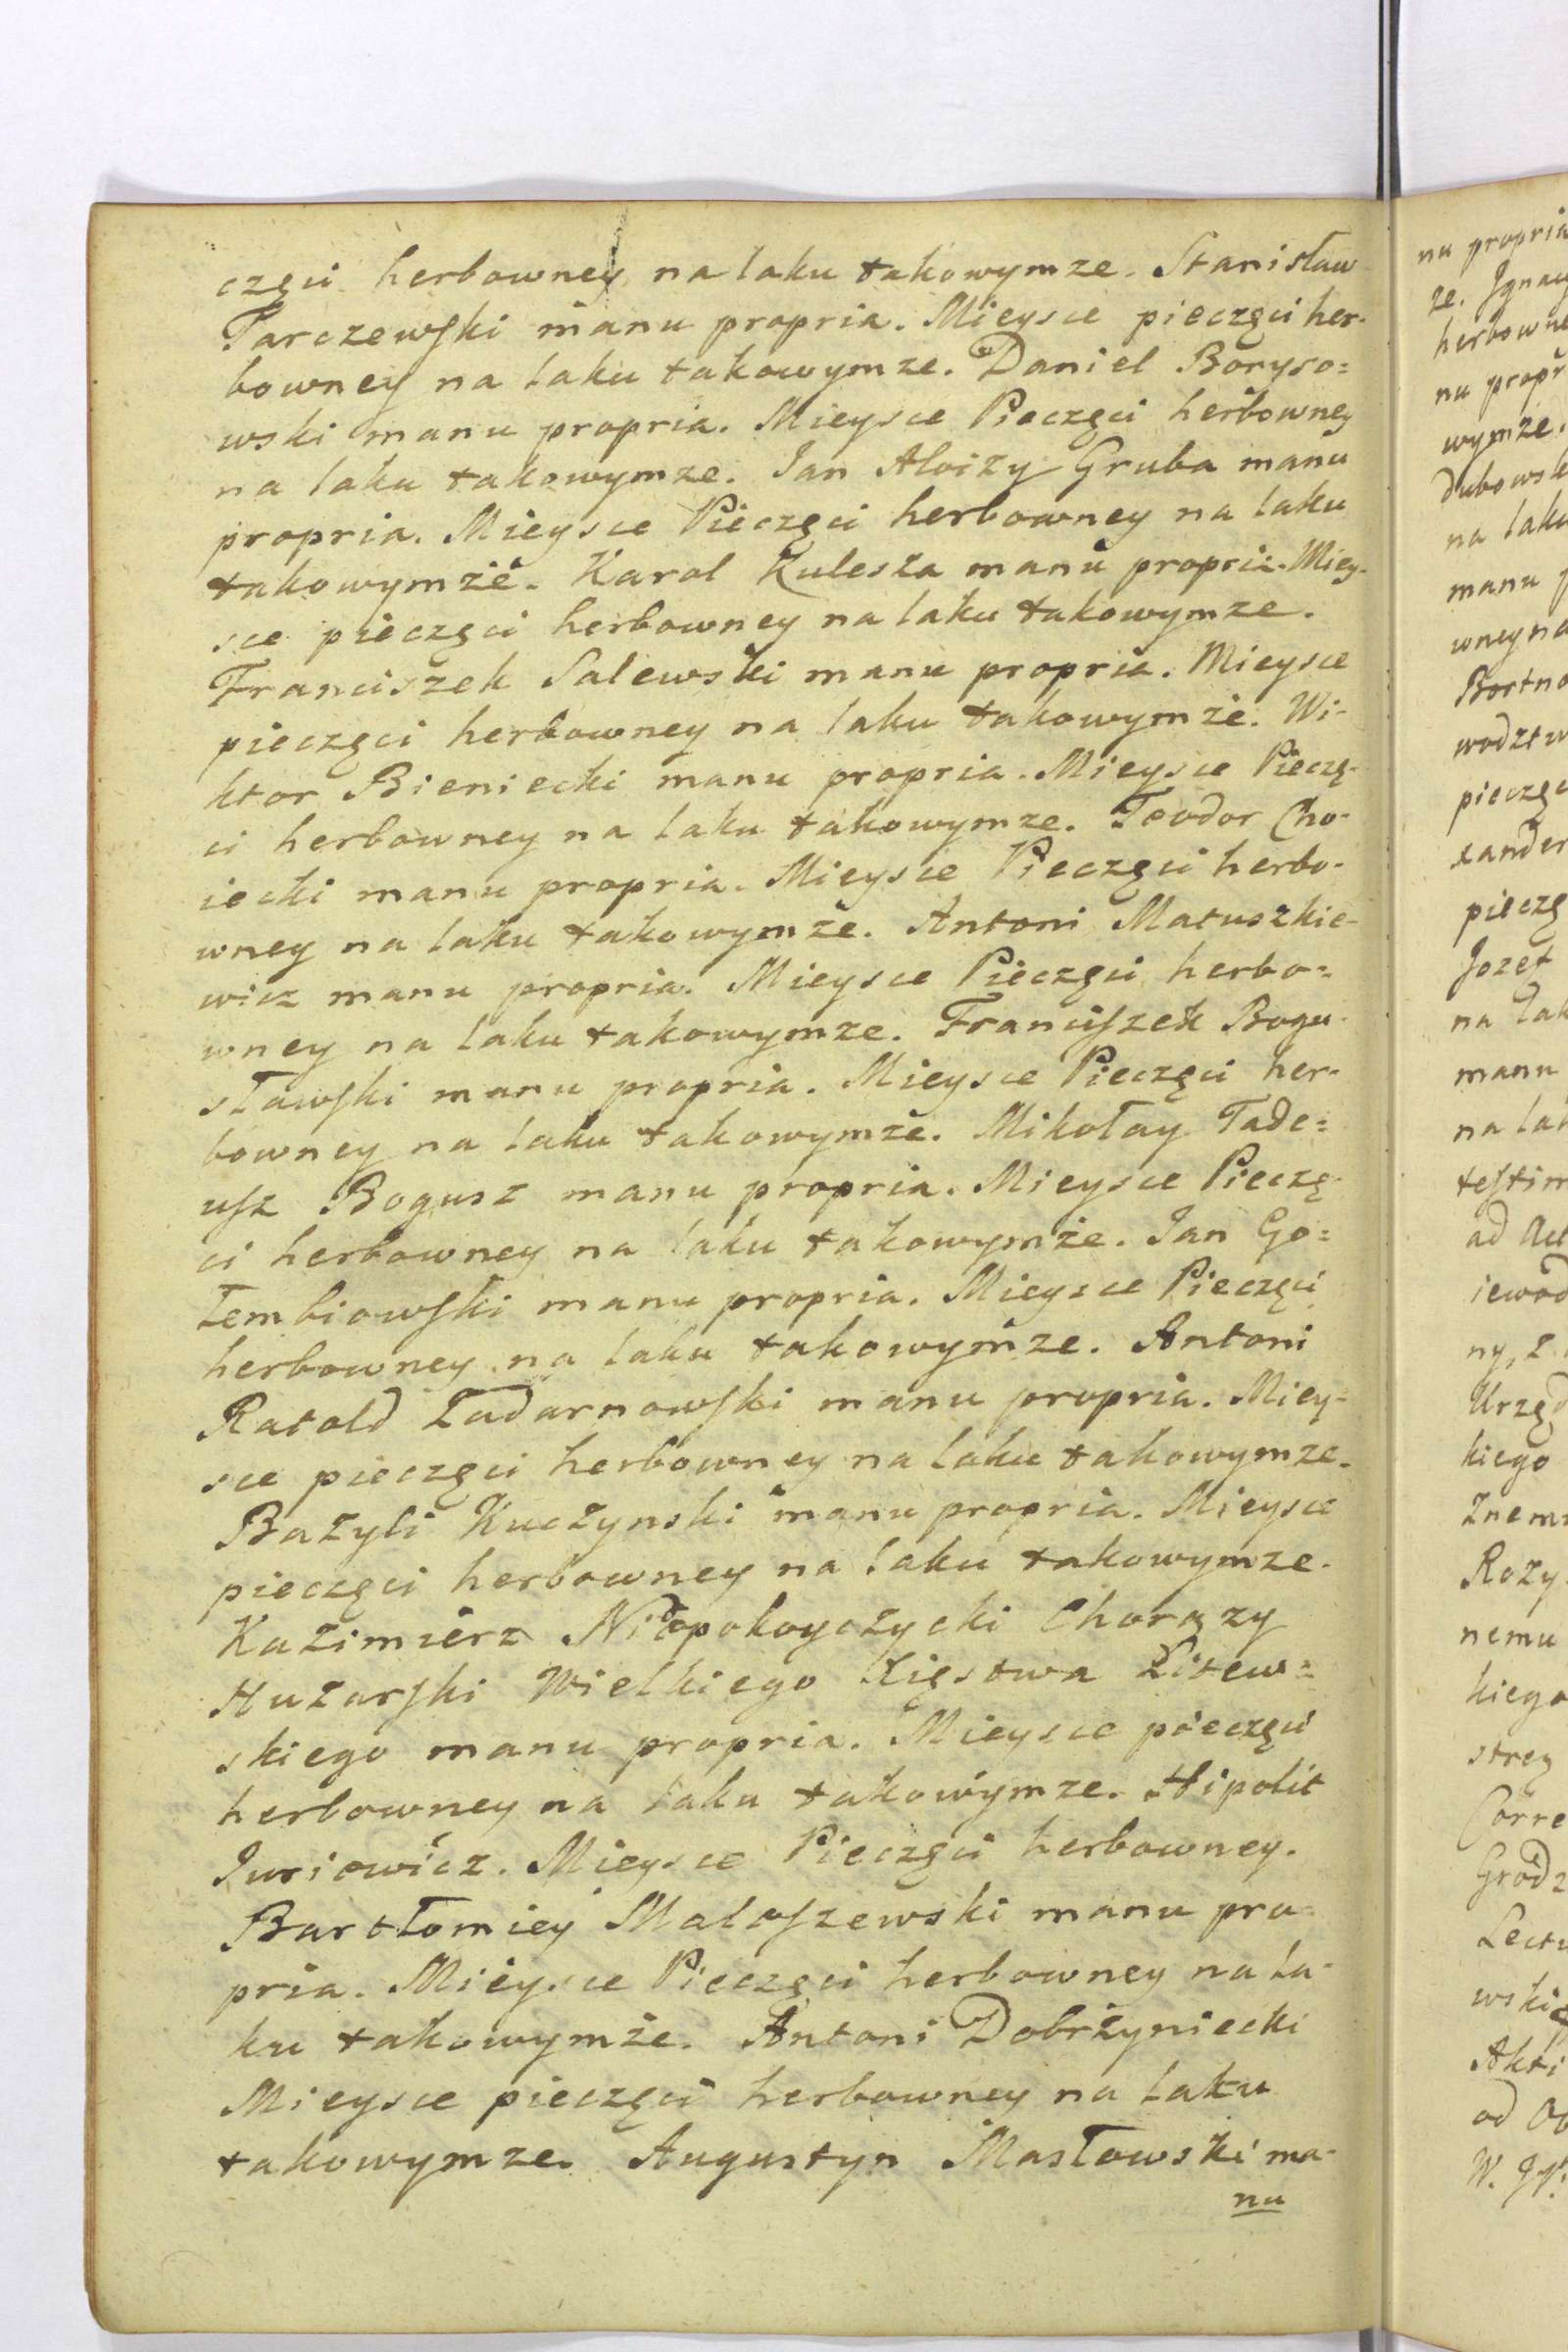 częci herbowney na laku takowymze. Stanisław
Tarczewski manu propria. Mieysce pieczęci her-
bowney na laku takowymze. Daniel Boryso=
wski manu propria. Mieysce Pieczęci herbowney
na laku takowymze. Jan Aloizy Gruba manu
propria. Mieysce Pieczęci herbowney na laku
takowymże. Karol Kulesza manu propria. Miey-
sce pieczęci herbowney na laku takowymze.
Franciszek Salewski manu propria. Mieysce
pieczęci herbowney na laku takowymże. Wi-
ktor Bieniecki manu propria. Mieysce Pieczę-
ci herbowney na laku takowymze. Teodor Cho-
iecki manu propria. Mieysce Pieczęci herbo-
wney na laku takowymże. Antoni Matuszkie-
wicz manu propria. Mieysce Pieczęci herbo=
wney na laku takowymze. Franciszek Bogu-
sławski manu propria. Mieysce Pieczęci her-
bowney na laku takowymże. Mikołay Tade=
usz Bogusz manu propria. Mieysce Pieczę-
ci herbowney na laku takowymże. Jan Go=
łembiowski manu propria. Mieysce Pieczęci
herbowney na laku takowymze. Antoni
Ratold Zadarnowski manu propria. Miey-
sce pieczęci herbowney na laku takowymze.
Bazyli Kuczynski manu propria. Mieysce
pieczęci herbowney na laku takowymze.
Kazimierz Niepokoyczycki Chorązy
Huzarski Wielkiego Xięstwa Litew=
skiego manu propria. Mieysce pieczęci
herbowney na laku takowymze. Hipolit
Juriewicz. Mieysce Pieczęci herbowney.
Bartłomiey Maloszewski manu pro-
pria. Mieysce Pieczęci herbowney na la-
ku takowymże. Antoni Dobrzyniecki
Mieysce pieczęci herbowney na laku
takowymze. Augustyn Masłowski ma-
nu
nu propria
ze.
herbowne
nu propr
wymże.
dubowsk
na laku
manu p
wney na
Bortno
wodztw
pieczęc
xander
pieczę
Jozef
na lak
manu
na lak
testim
ad
iewod
ny, z
Urzęd
kiego
Znem
Rozy
nemu
kiego
streg
Corre
Grodz
Lectu
wski
Akti
od
W.